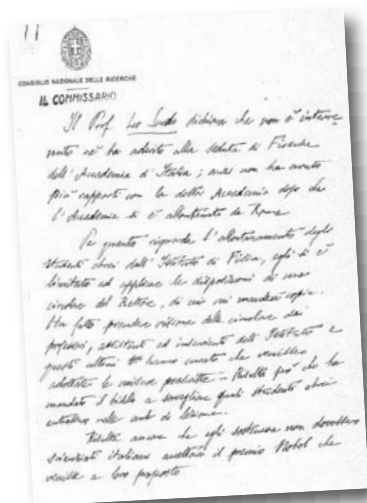 11
CONSIGLIO NAZIONALE DELLE RICERCHE
IL COMMISSARIO
Il Prof. Lo Surdo dichiara che non è interve-
nuto nè ha aderito alla seduta di Firenze
dell'Accademia d'Italia; anzi non ha avuto
più rapporti con la detta Accademia dopo che
l'Accademia si è allontanata da Roma
Per quanto riguarda l'allontanamento degli
studenti ebrei dall'Istituto di Fisica, egli si è
limitato ad applicare le disposizioni di una
circolare del Rettore, di cui mi manderà copia.
Ha fatto prendere visione della circolare dai
professori, assistenti ed inservienti dell'Istituto e
questi ultimi hanno curato che venissero
adottate le misure prescritte - che ha
mandato il bidello a sorvegliare quali studenti ebrei
entrassero nelle aule di lezione.
ancora che egli sostenesse non dovessero
scienziati italiani accettare il premio Nobel che
venisse a loro proposto